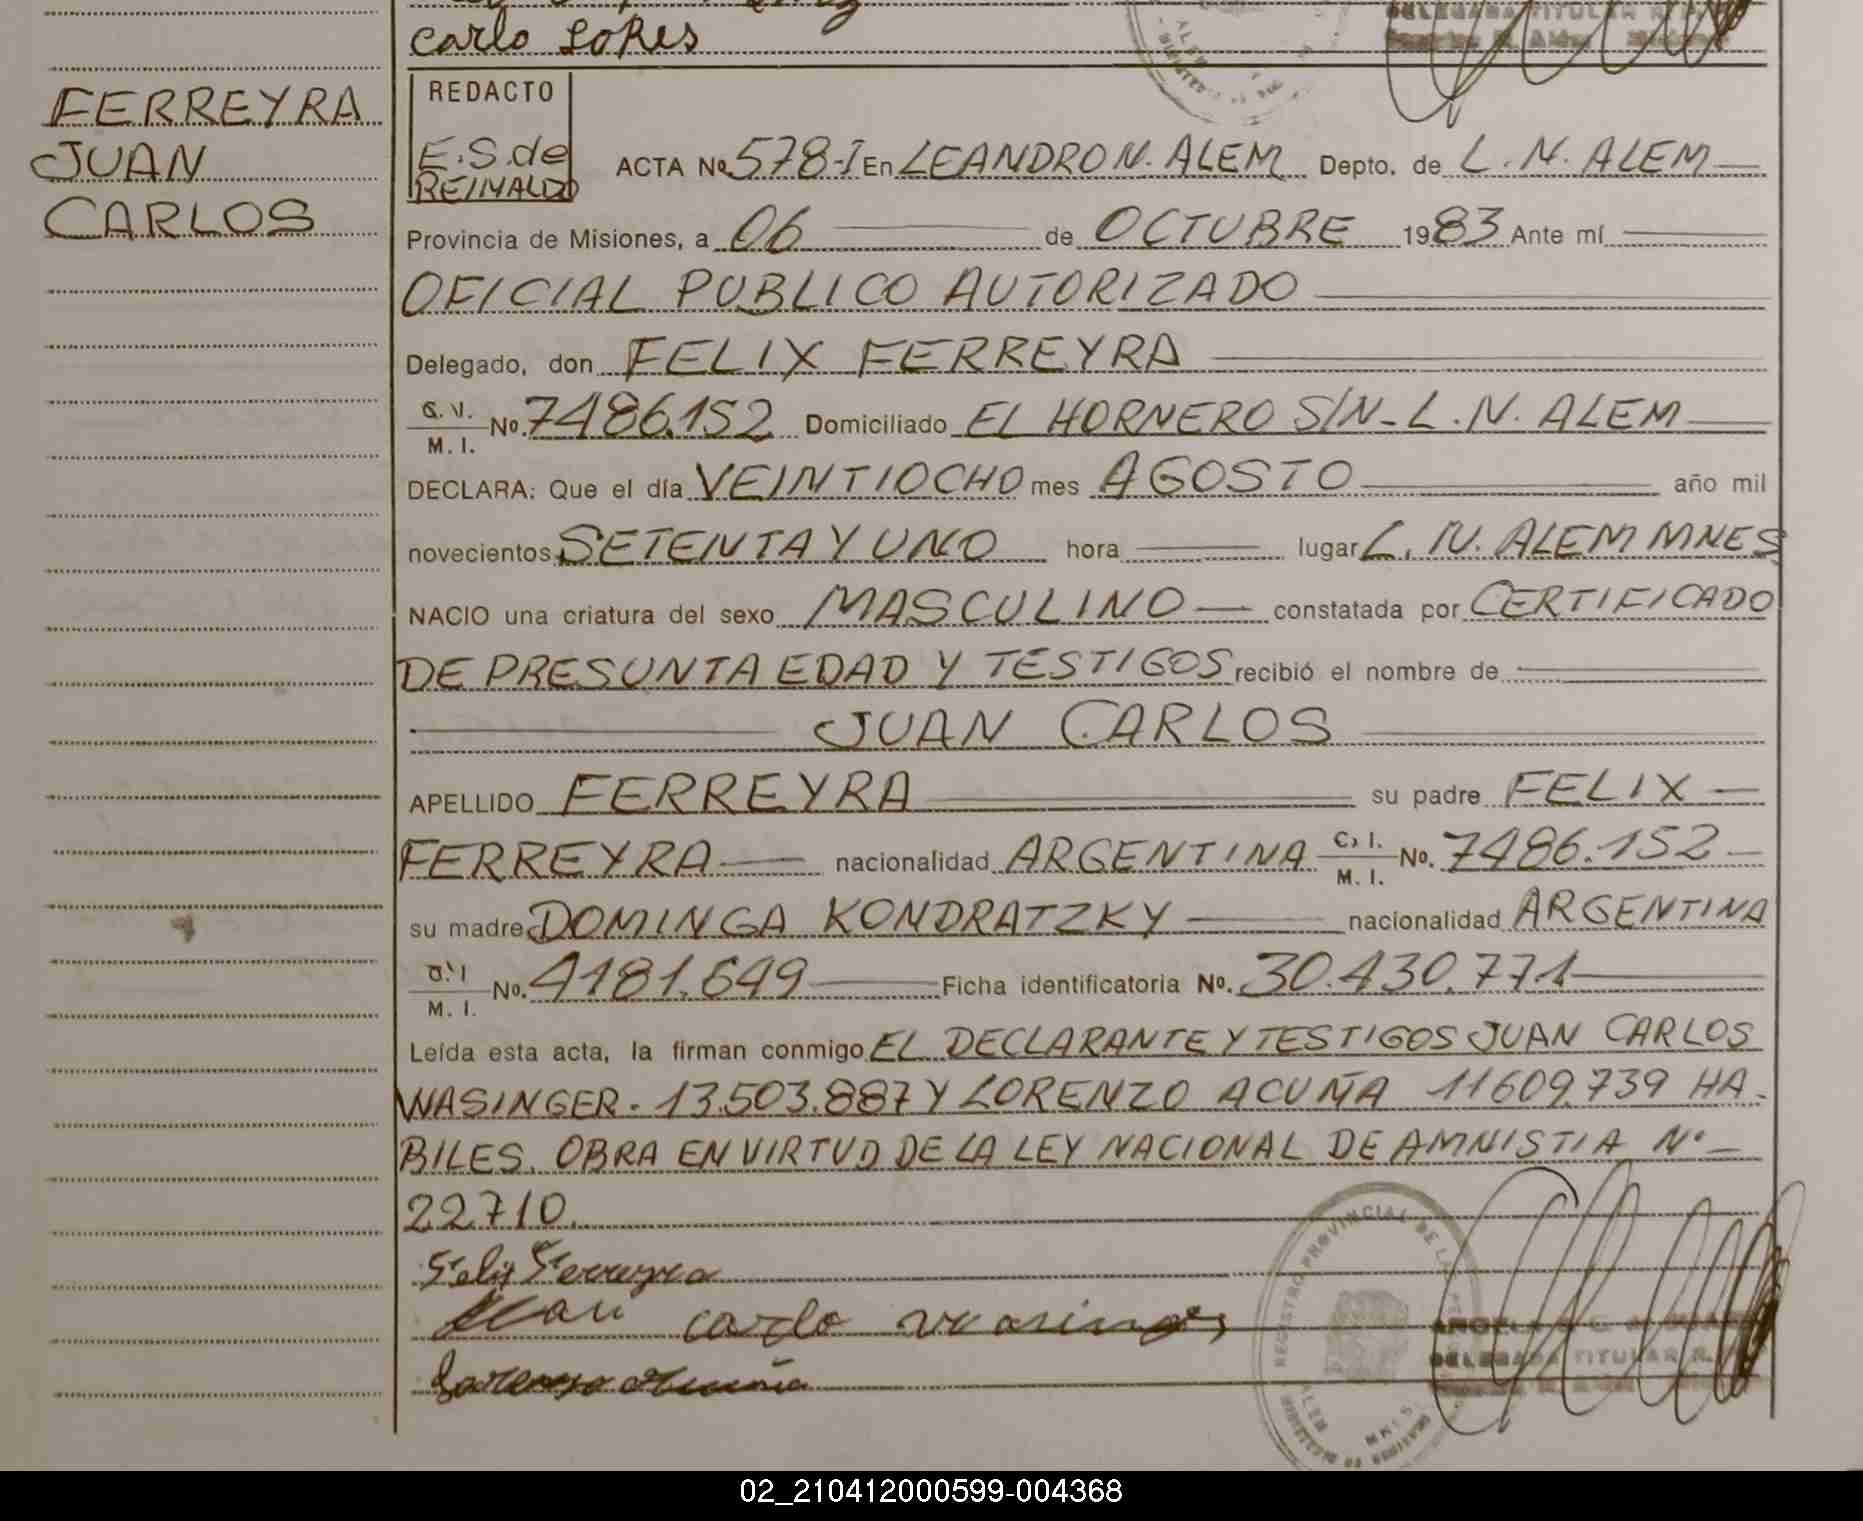 carlo Lopes
FERREYRA
JUAN
CARLOS
REDACTO
E.S. de
REINALDO
ACTA No 578-I En LEANDRO N. ALEM Depto. de L. N. ALEM
Provincia de Misiones, a 06 de OCTUBRE 1983 Ante mí
OFICIAL PUBLICO AUTORIZADO
Delegado, don FELIX FERREYRA
M. I. No. 7486.152 Domiciliado EL HORNERO S/N - L. N. ALEM
DECLARA: Que el día VEINTIOCHO mes AGOSTO año mil
novecientos SETENTA Y UNO hora lugar L. N. ALEM MNES
NACIO una criatura del sexo MASCULINO constatada por CERTIFICADO
DE PRESUNTA EDAD Y TESTIGOS recibió el nombre de
JUAN CARLOS
APELLIDO FERREYRA su padre FELIX
FERREYRA nacionalidad ARGENTINA C. I. M. I. No. 7486.152
su madre DOMINGA KONDRATZKY nacionalidad ARGENTINA
M. I. No. 4181.649 Ficha identificatoria No. 30.430.771
Leída esta acta, la firman conmigo EL DECLARANTE Y TESTIGOS JUAN CARLOS
WASINGER. 13.503.887 Y LORENZO ACUÑA 11609.739 HA-
BILES. OBRA EN VIRTUD DE LA LEY NACIONAL DE AMNISTIA Nº
22710.
Felix Ferreyra
carlo wasinger
Lorenzo Acuña
REGISTRO PROVINCIAL DE LAS
DELEGADA TITULAR
02_210412000599-004368